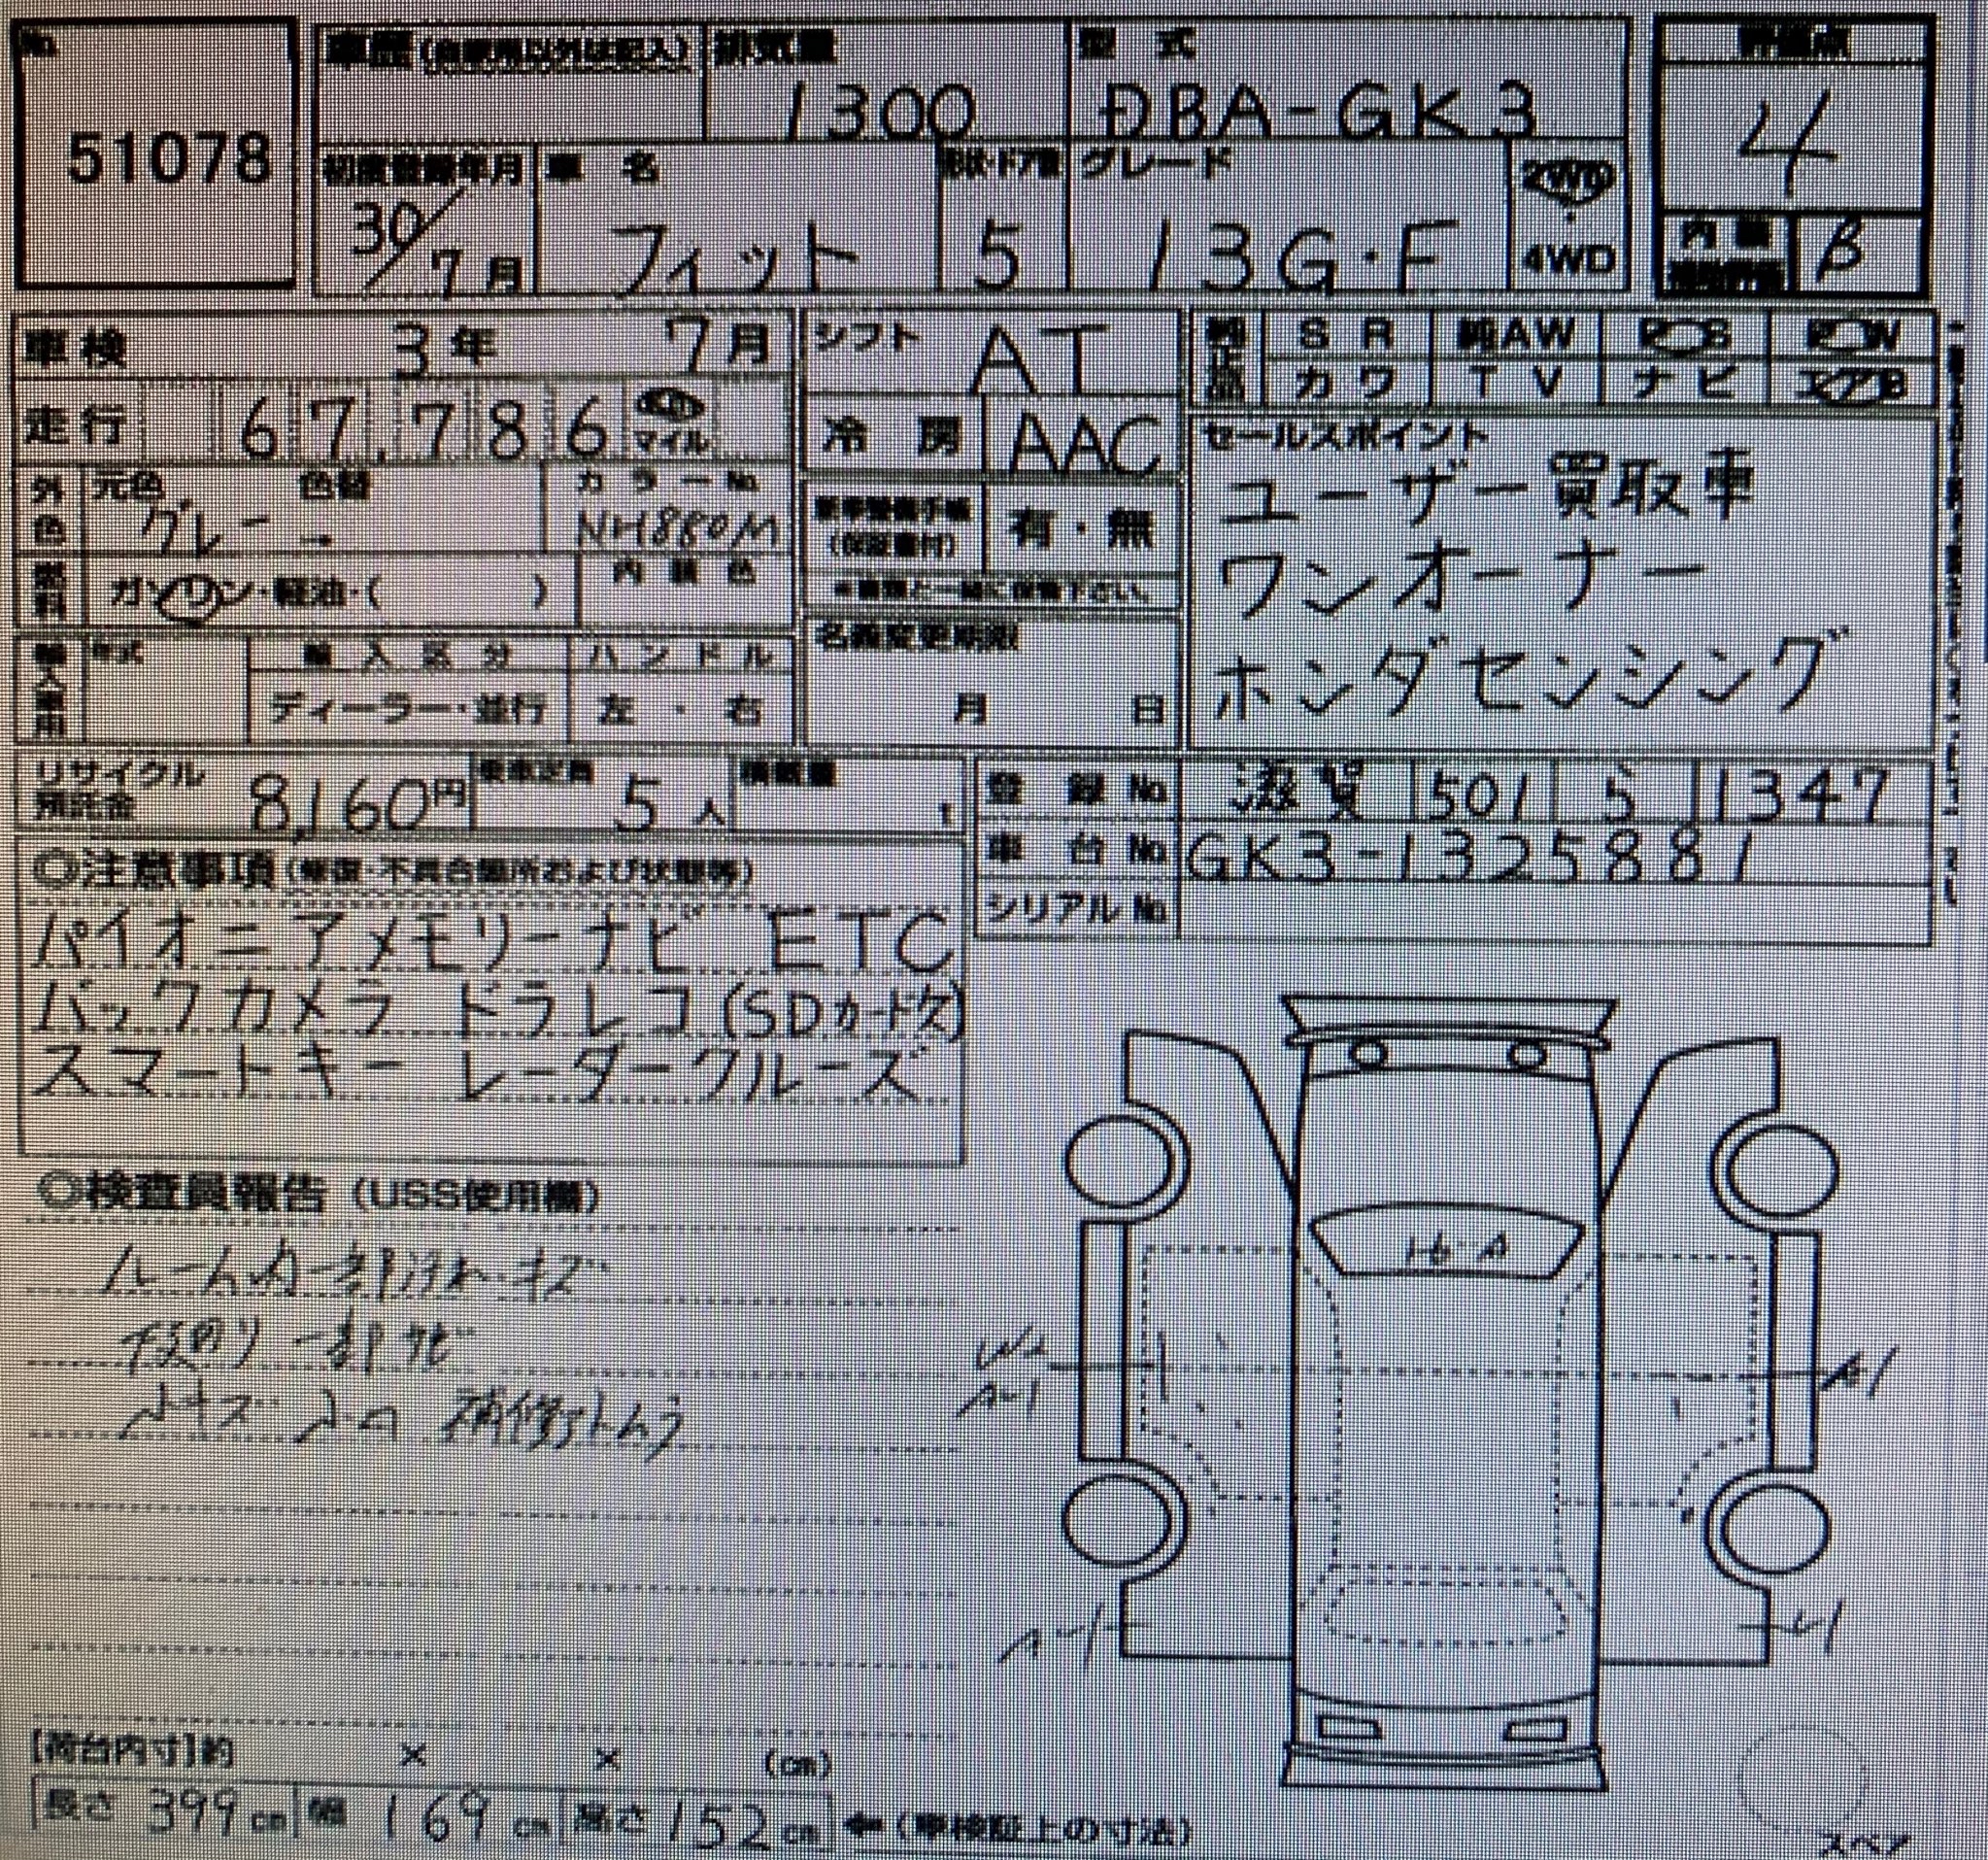 No.
51078
車歴(自家用以外は記入) 排気量 型 式 評価点
1300 DBA-GK3 4
初度登録年月 車 名 形状・ドア数 グレード 2WD
30/7月 フィット 5 13G・F 4WD
内 装 B
車検 3年 7月 シフト AT
S R 純AW
カワ TV ナビ エアB
走行 67,786 マイル 冷 房 AAC
セールスポイント
ユーザー買取車
ワンオーナー
ホンダセンシング
外色 元色 グレー → 色替 カラーNo. NH880M
新車整備手帳(保証書付) 有・無
燃料 ガソリン・軽油・( ) 内 装 色
名義変更期限
月 日
輸入車用 年式 輸 入 区 分 ハンドル
ディーラー・並行 左・右
リサイクル預託金 8,160円 乗車定員 5人 積載量 t
登 録 No. 滋賀 501 ら 1347
車 台 No. GK3-1325881
シリアル No.
◎注意事項(修復・不具合箇所および状態等)
パイオニアメモリーナビ ETC
バックカメラ ドラレコ(SDカード欠)
スマートキー レーダークルーズ
◎検査員報告(USS使用欄)
ルーム内一部汚れ・キズ
下廻り一部サビ
W2
A1
A1
A1
[荷台内寸]約 × × (cm)
長さ 399cm 幅 169cm 高さ 152cm ←(車検証上の寸法)
スペア